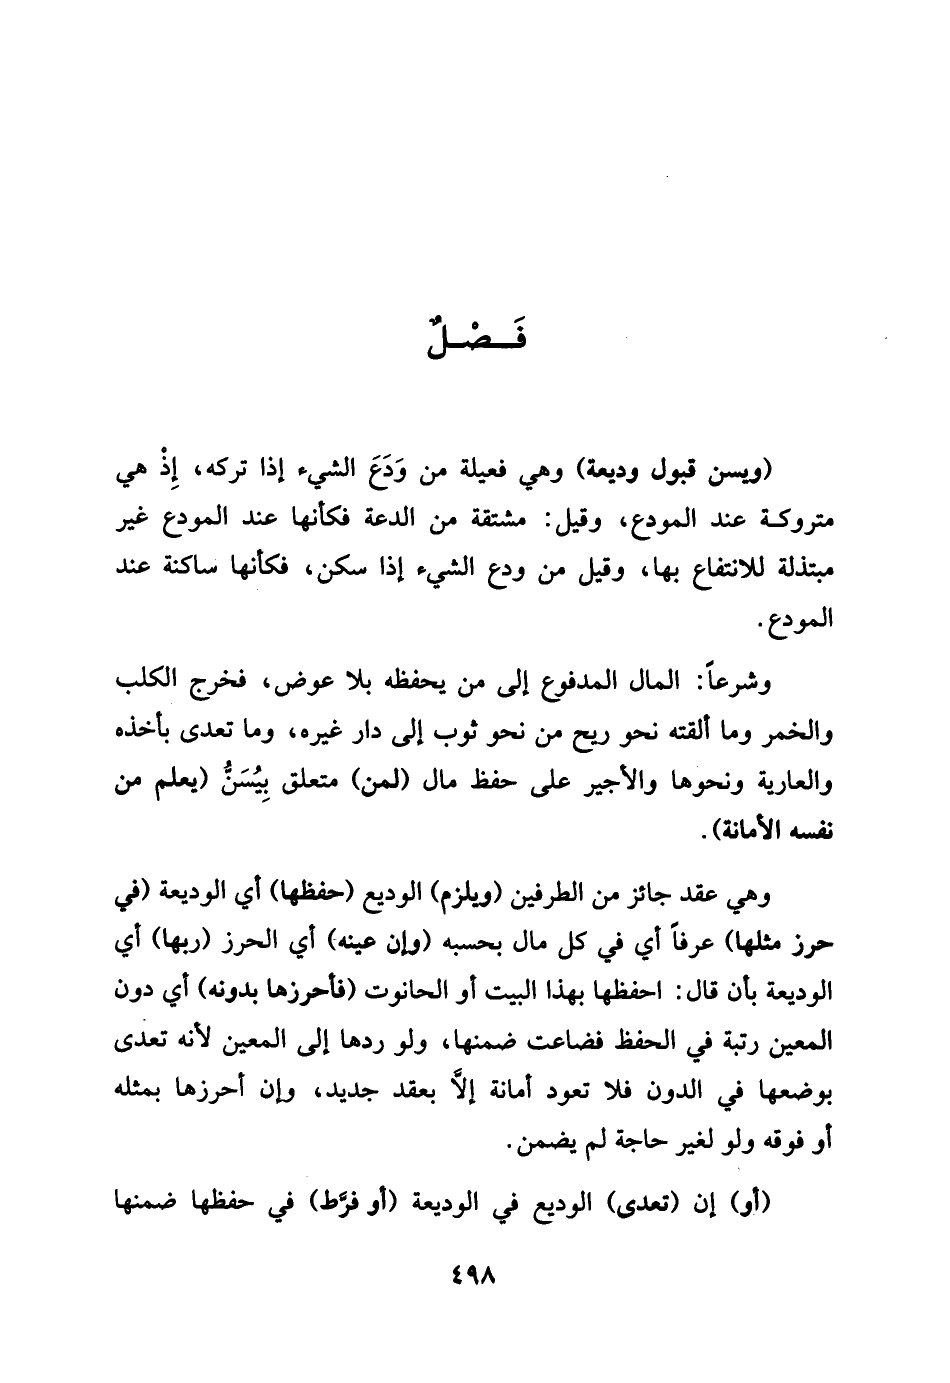 فَـصْـلٌ
(ويسن قبول وديعة) وهي فعيلة من وَدَعَ الشيء إذا تركه، إِذْ هي
متروكة عند المودع، وقيل: مشتقة من الدعة فكأنها عند المودع غير
مبتذلة للانتفاع بها، وقيل من ودع الشيء إذا سكن، فكأنها ساكنة عند
المودع.
وشرعاً: المال المدفوع إلى من يحفظه بلا عوض، فخرج الكلب
والخمر وما ألقته نحو ريح من نحو ثوب إلى دار غيره، وما تعدى بأخذه
والعارية ونحوها والأجير على حفظ مال (لمن) متعلق بِيُسَنُّ (يعلم من
نفسه الأمانة).
وهي عقد جائز من الطرفين (ويلزم) الوديع (حفظها) أي الوديعة (في
حرز مثلها) عرفاً أي في كل مال بحسبه (وإن عينه) أي الحرز (ربها) أي
الوديعة بأن قال: احفظها بهذا البيت أو الحانوت (فأحرزها بدونه) أي دون
المعين رتبة في الحفظ فضاعت ضمنها، ولو ردها إلى المعين لأنه تعدى
بوضعها في الدون فلا تعود أمانة إلَّا بعقد جديد، وإن أحرزها بمثله
أو فوقه ولو لغير حاجة لم يضمن.
(أو) إن (تعدى) الوديع في الوديعة (أو فرَّط) في حفظها ضمنها
٤٩٨